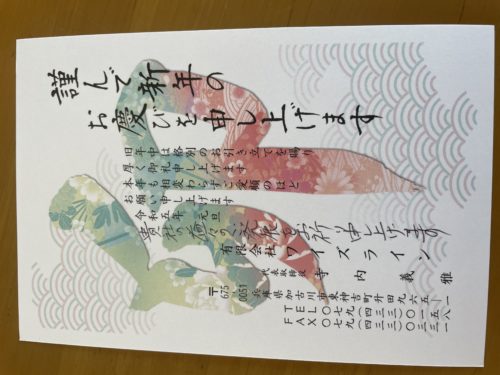 謹んで新年の
お慶びを申し上げます
旧年中は格別のお引き立てを賜り
厚く御礼申し上げます
本年も相変わらずご愛顧のほど
お願い申し上げます
令和五年 元旦
貴社の益々のご発展をお祈り申し上げます
有限会社ワイズライン
代表取締役 寺内義雅
〒675-0051
兵庫県加古川市東神吉町升田九六五
TEL〇七九(四三三)
FAX〇七九(四三三)